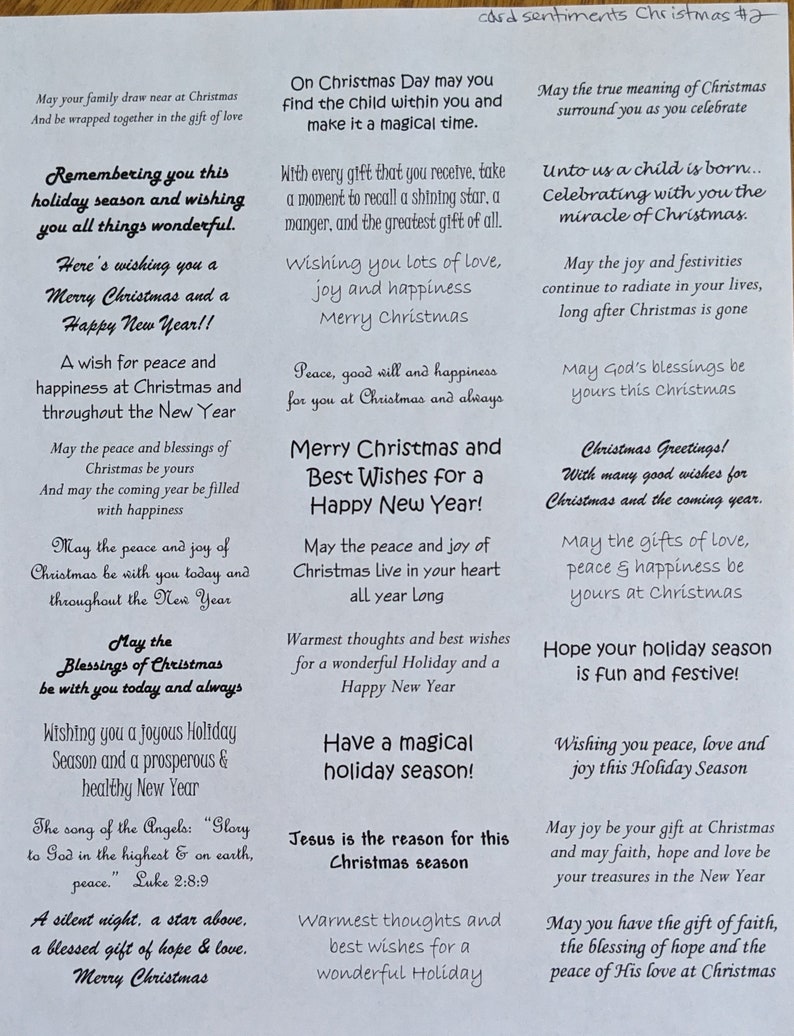 card sentiments Christmas #2
May your family draw near at Christmas
And be wrapped together in the gift of love
On Christmas Day may you
find the child within you and
make it a magical time.
May the true meaning of Christmas
surround you as you celebrate
Remembering you this
holiday season and wishing
you all things wonderful.
With every gift that you receive, take
a moment to recall a shining star, a
manger, and the greatest gift of all.
Unto us a child is born...
Celebrating with you the
miracle of Christmas.
Here's wishing you a
Merry Christmas and a
Happy New Year!!
Wishing you lots of love,
joy and happiness
Merry Christmas
May the joy and festivities
continue to radiate in your lives,
long after Christmas is gone
A wish for peace and
happiness at Christmas and
throughout the New Year
Peace, good will and happiness
for you at Christmas and always
May God's blessings be
yours this Christmas
May the peace and blessings of
Christmas be yours
And may the coming year be filled
with happiness
Merry Christmas and
Best Wishes for a
Happy New Year!
Christmas Greetings!
With many good wishes for
Christmas and the coming year.
May the peace and joy of
Christmas be with you today and
throughout the New Year
May the peace and joy of
Christmas live in your heart
all year long
May the gifts of love,
peace & happiness be
yours at Christmas
May the
Blessings of Christmas
be with you today and always
Warmest thoughts and best wishes
for a wonderful Holiday and a
Happy New Year
Hope your holiday season
is fun and festive!
Wishing you a joyous Holiday
Season and a prosperous &
healthy New Year
Have a magical
holiday season!
Wishing you peace, love and
joy this Holiday Season
The song of the Angels: "Glory
to God in the highest & on earth,
peace." Luke 2:8:9
Jesus is the reason for this
Christmas season
May joy be your gift at Christmas
and may faith, hope and love be
your treasures in the New Year
A silent night, a star above,
a blessed gift of hope & love.
Merry Christmas
Warmest thoughts and
best wishes for a
wonderful Holiday
May you have the gift of faith,
the blessing of hope and the
peace of His love at Christmas